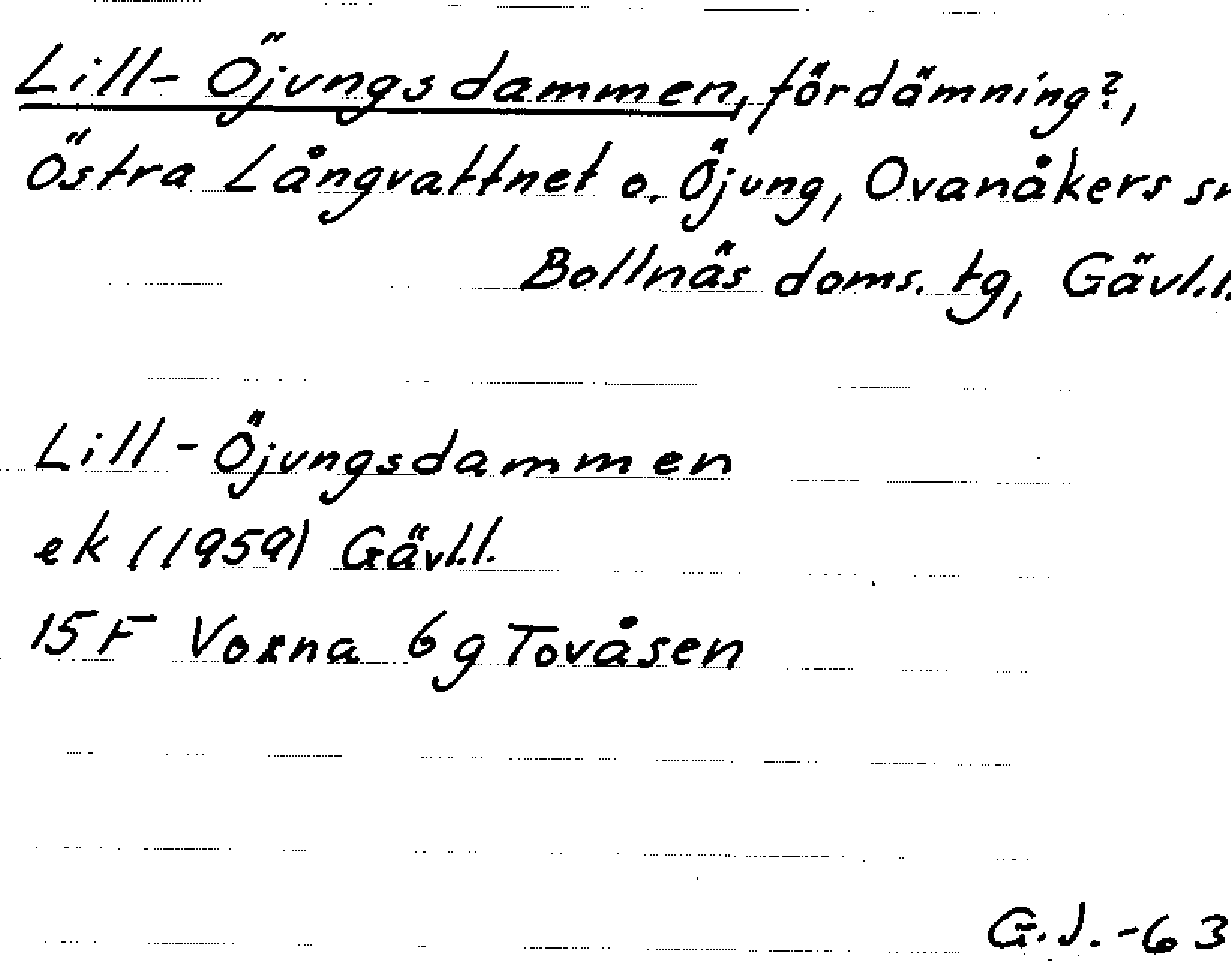 Lill-Öjungsdammen, fördämning?,
Östra Långvattnet o. Öjung, Ovanåkers sn
Bollnäs doms. tg, Gävl.l.
Lill-Öjungsdammen
ek (1959) Gävl.l.
15F Voxna 6g Tovåsen
G.J.-63